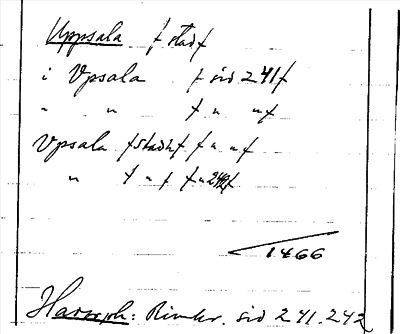 Uppsala f stad f
i Vpsala f sid 241 f
" " f " " f
Vpsala f stadh f f " " f
" f " f f " 242 f
1466
: Rimkr. sid 241. 242